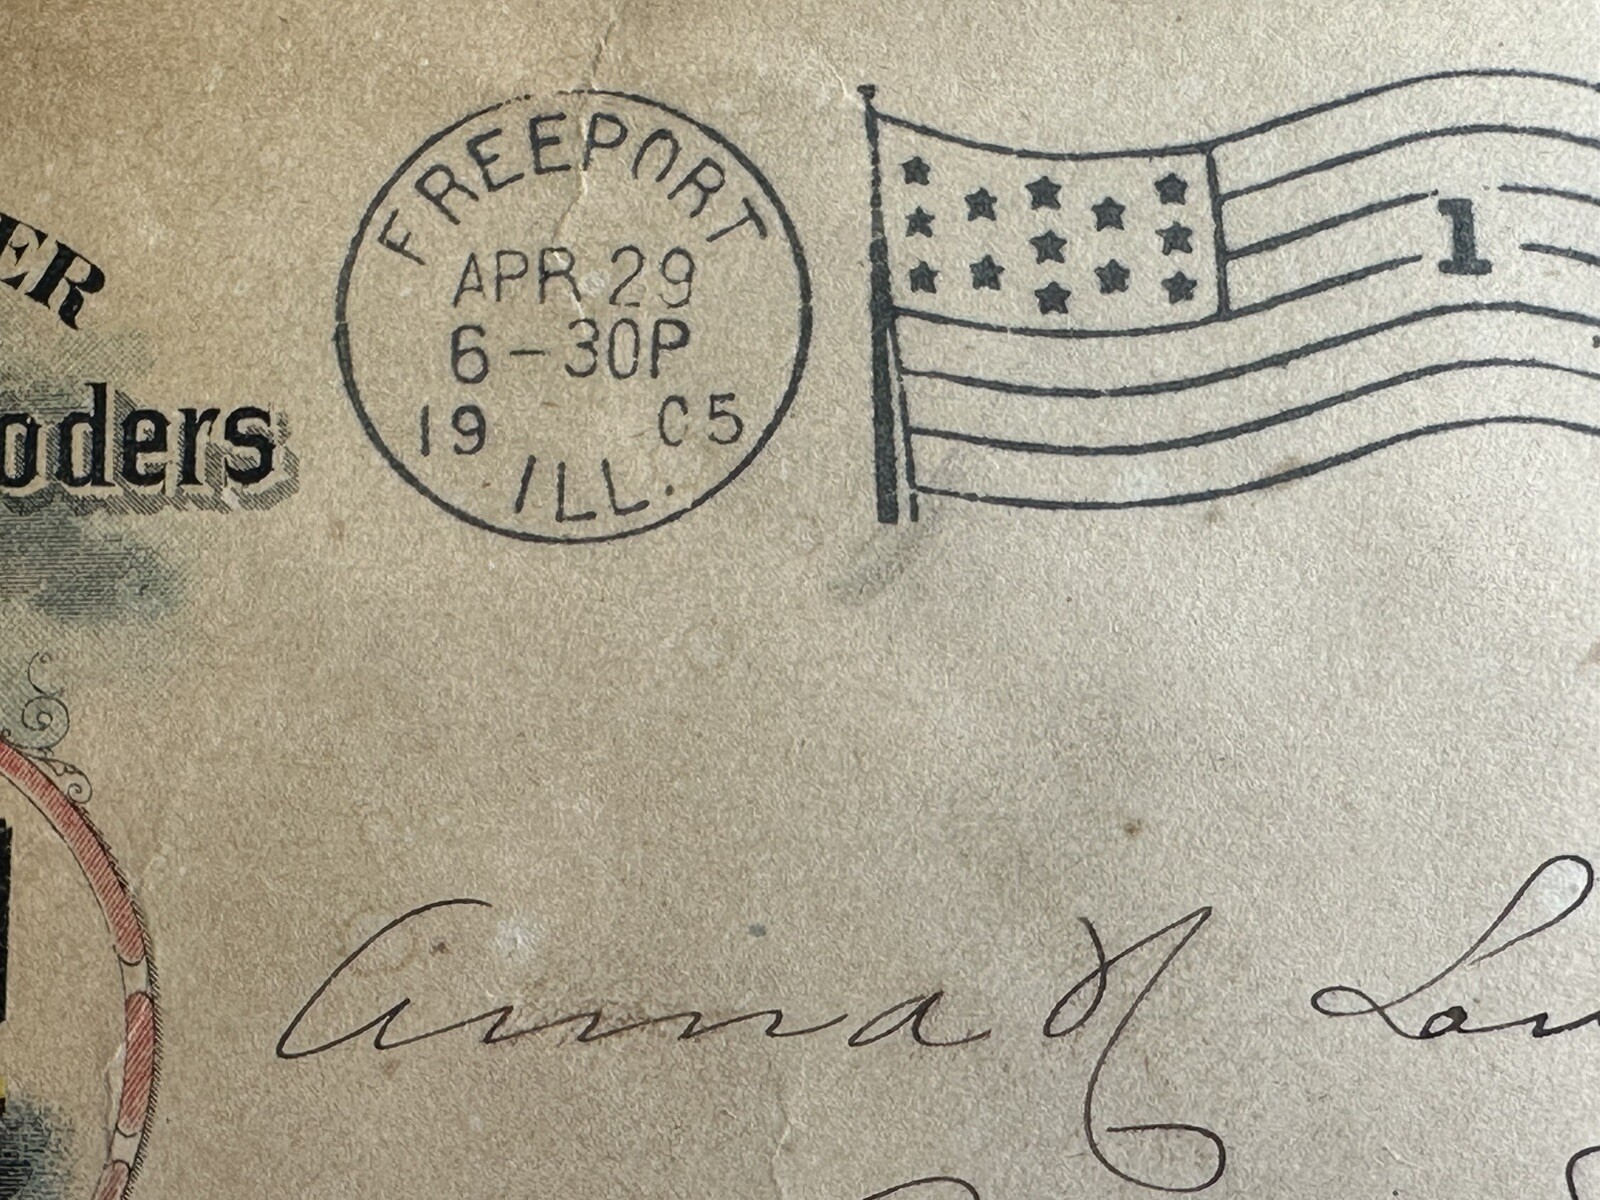 FREEPORT
APR 29
6-30P
19 05
ILL.
1
ER
oders
Anna